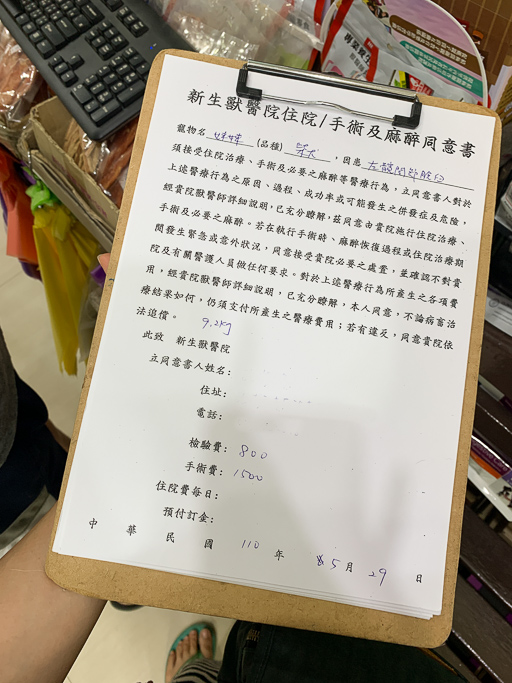 新生獸醫院住院/手術及麻醉同意書
寵物名 (品種) 柴犬 ,因患 左髖關節脫臼
須接受住院治療、手術及必要之麻醉等醫療行為,立同意書人對於
上述醫療行為之原因、過程、成功率或可能發生之併發症及危險,
經貴院獸醫師詳細說明,已充分瞭解,茲同意由貴院施行住院治療、
手術及必要之麻醉。若在執行手術時、麻醉恢復過程或住院治療期
間發生緊急或意外狀況,同意接受貴院必要之處置,並確認不對貴
院及有關醫護人員做任何要求。對於上述醫療行為所產生之各項費
用,經貴院獸醫師詳細說明,已充分瞭解,本人同意,不論病畜治
療結果如何,仍須支付所產生之醫療費用;若有違反,同意貴院依
法追償。 9.2kg
此致 新生獸醫院
立同意書人姓名:
住址:
電話:
檢驗費: 800
手術費: 1500
住院費每日:
預付訂金:
中華民國 110 年 5 月 29 日